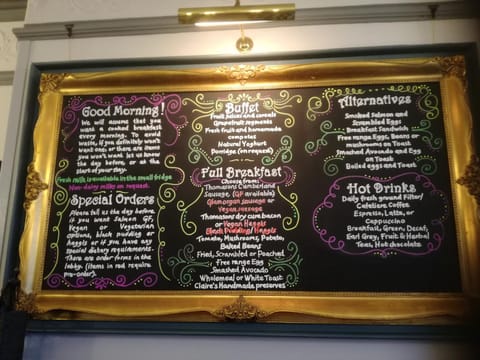 Good Morning!
We will assume that you
want a cooked breakfast
every morning. To avoid
waste, if you definitely won't
want one, or there are items
you won't want let us know
the day before, or at the
start of your stay.
Fresh milk is available in the small fridge
Non-dairy milks on request.
Special Orders
Please tell us the day before
if you want Salmon, GF,
Vegan or Vegetarian
options, black pudding or
haggis or if you have any
special dietary requirements.
There are order forms in the
lobby. (items in red require
pre-order).
Buffet
Fruit juices and cereals
Grapefruit segments
Fresh fruit and homemade
compotes
Natural Yoghurt
Porridge (on request)
Full Breakfast
Choose from:
Thomasons Cumberland
Sausage, (GF available)
Glamorgan sausage or
Vegan sausage
Thomasons dry cure bacon
or Vegan Haggis
Black Pudding/Haggis
Tomato, Mushrooms, Potato,
Baked Beans
Fried, Scrambled or Poached
Free range Egg
Smashed Avocado
Wholemeal or White Toast
Claire's Handmade preserves
Alternatives
Smoked Salmon and
Scrambled Eggs
Breakfast Sandwich
Free range Eggs, Beans or
mushrooms on Toast
Smashed Avocado and Egg
on Toast
Boiled eggs and Toast
Hot Drinks
Daily fresh ground Filter/
Cafetiere, Coffee
Espresso, Latte, or
Cappuccino
Breakfast, Green, Decaf,
Earl Grey, Fruit & Herbal
Teas, Hot chocolate